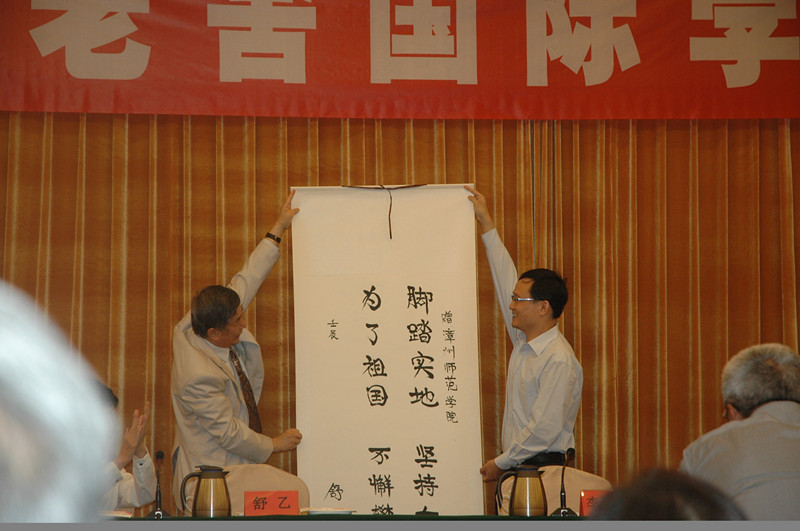 老舍国际学
赠漳州师范学院
脚踏实地 坚持
为了祖国 不懈
壬辰
舒
舒乙
李